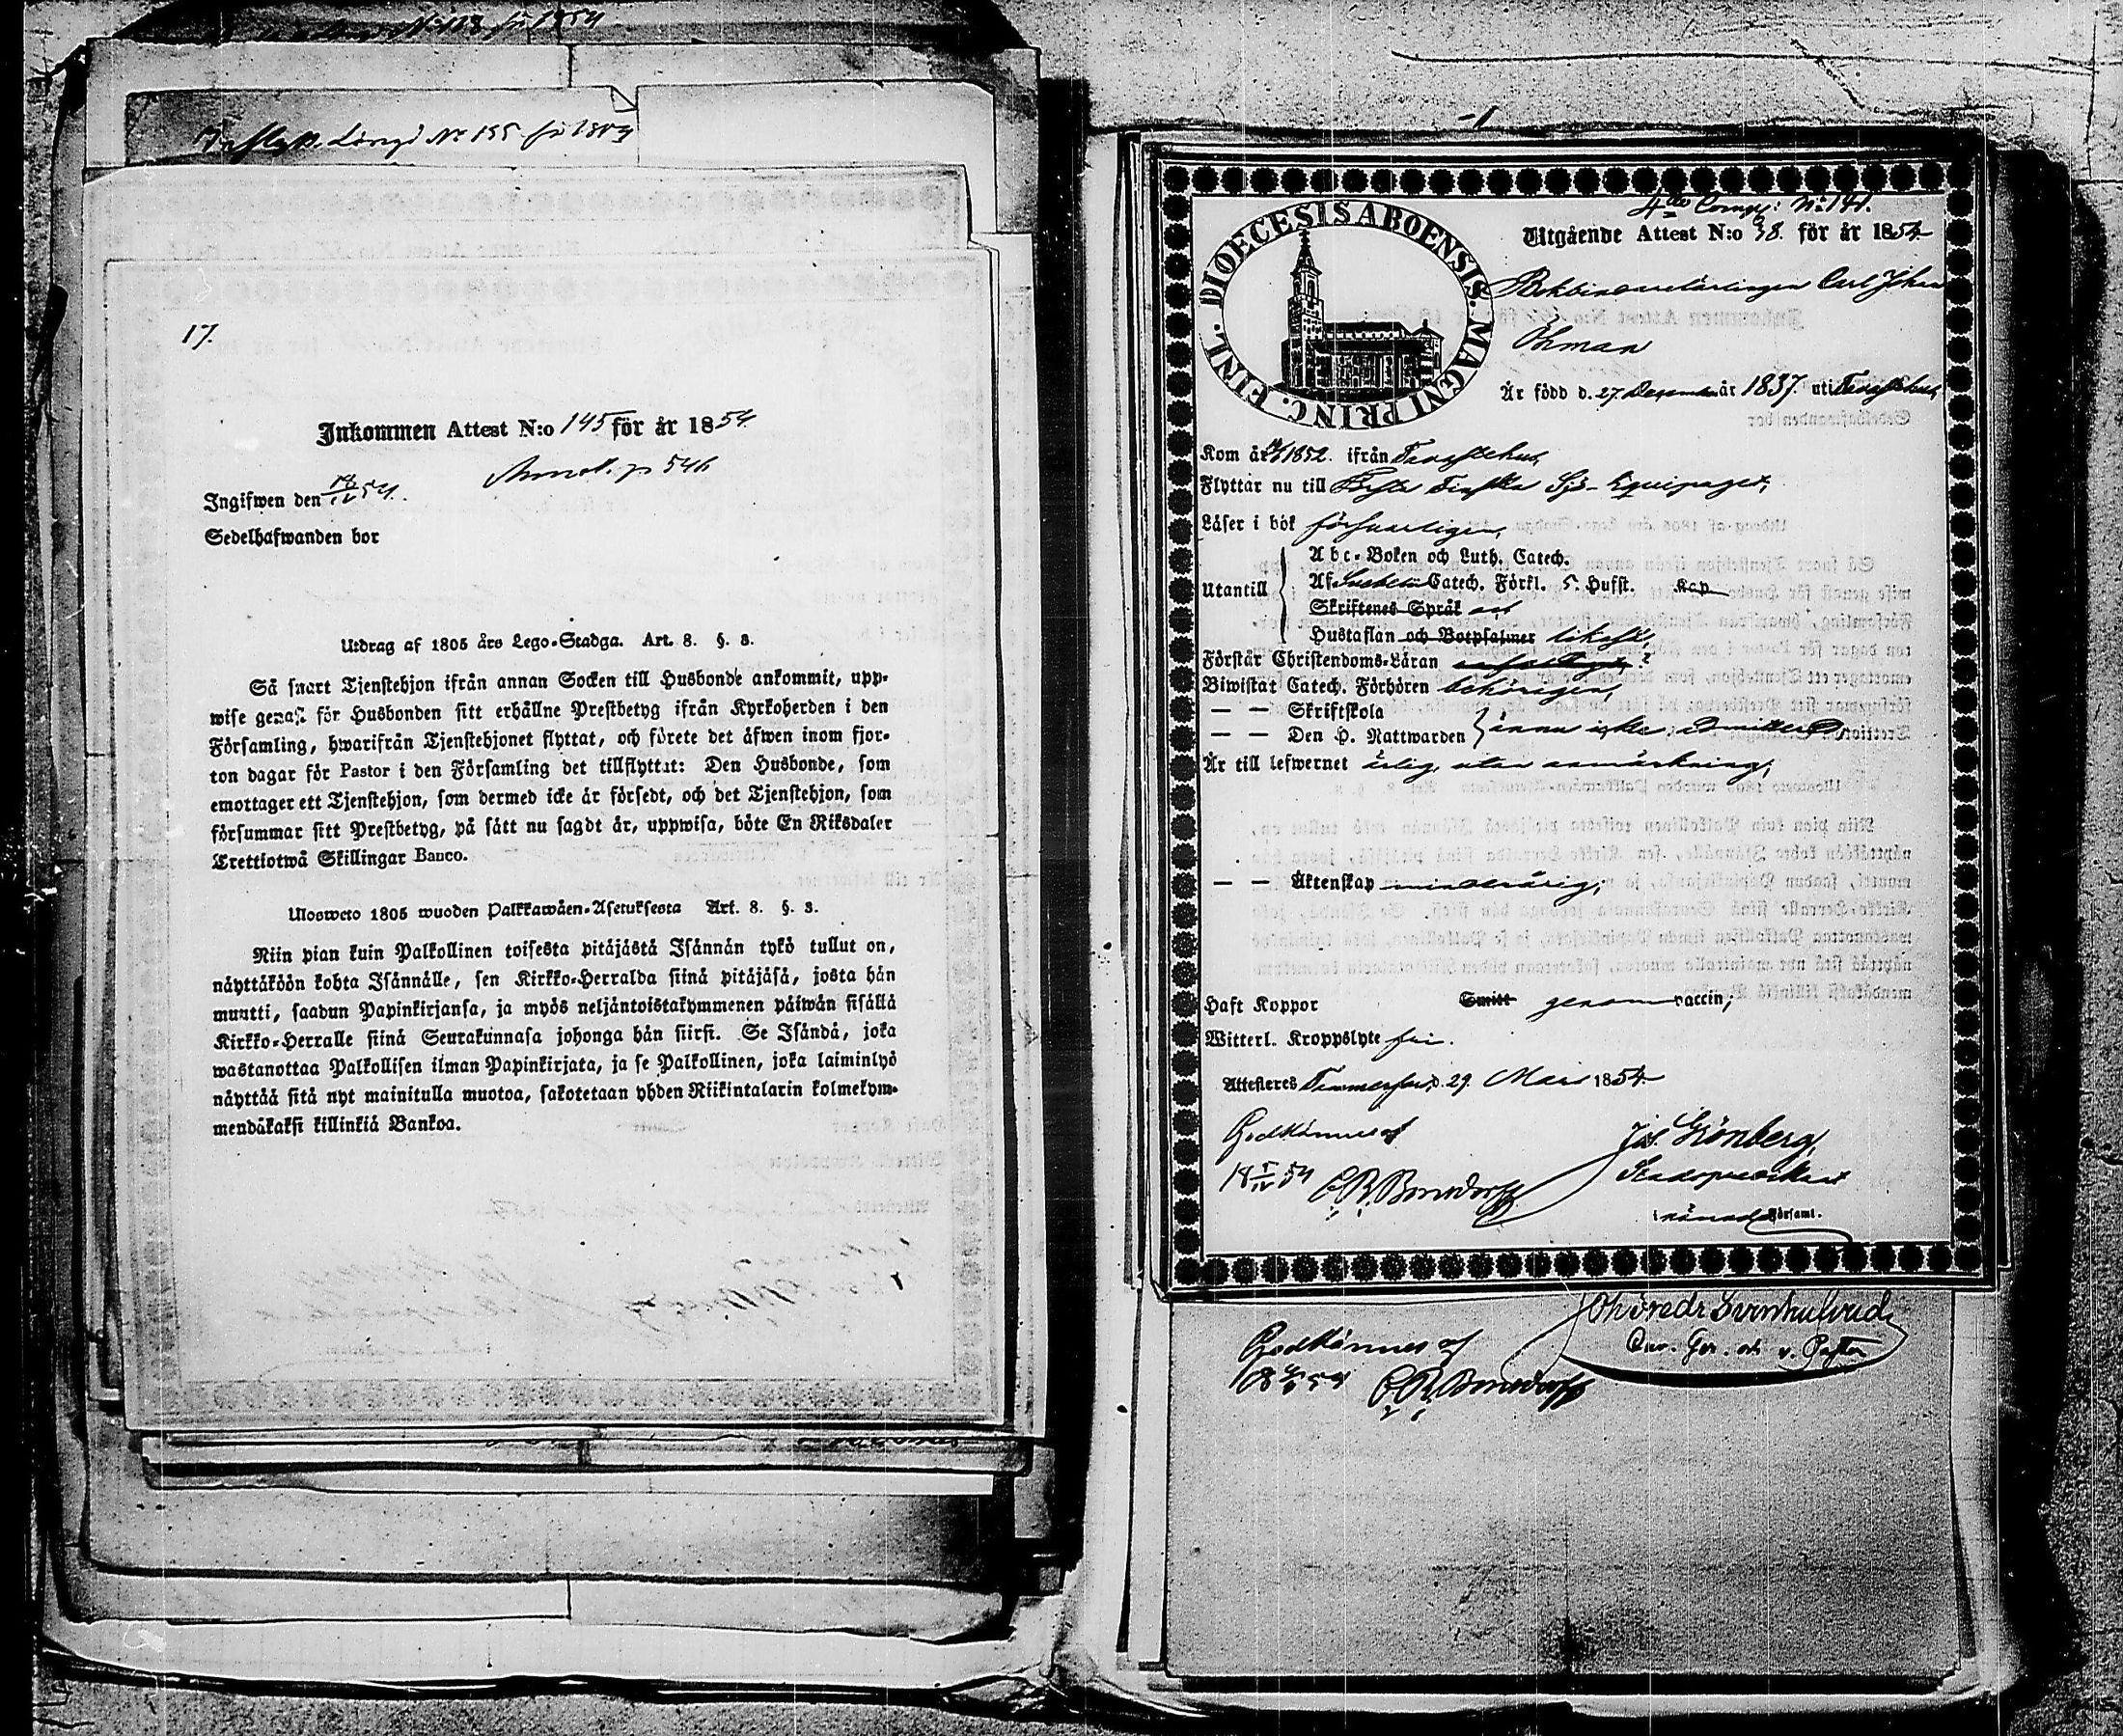 N:o 118 för 1854
Inflytt. Längd N:o 155 för 1854
17.
Inkommen Attest N:o 145 för år 1854
p 546
Ingifwen den 18/IV 54.
Sedelhafwanden bor
Utdrag af 1805 års Lego-Stadga. Art. 8. §. 3.
Så snart Tjenstehjon ifrån annan Socken till Husbonde ankommit, upp-
wise genast för Husbonden sitt erhållne Prestbetyg ifrån Kyrkoherden i den
Församling, hwarifrån Tjenstehjonet flyttat, och förete det äfwen inom fjor-
ton dagar för Pastor i den Församling det tillflyttat: Den Husbonde, som
emottager ett Tjenstehjon, som dermed icke är försedt, och det Tjenstehjon, som
försummar sitt Prestbetyg, på sätt nu sagdt är, uppwisa, böte En Riksdaler
Trettiotwå Skillingar Banco.
Ulosweto 1805 wuoden Palkkawäen-Asetuksesta Art. 8. §. 3.
Niin pian kuin Palkollinen toisesta pitäjästä Isännän tykö tullut on,
näyttäköön kohta Isännälle, sen Kirkko-Herralda siinä pitäjäsä, josta hän
muutti, saadun Papinkirjansa, ja myös neljäntoistakymmenen päiwän sisällä
Kirkko-Herralle siinä Seurakunnasa johonga hän siirsi. Se Isändä, joka
wastanottaa Palkollisen ilman Papinkirjata, ja se Palkollinen, joka laiminlyö
näyttää sitä nyt mainitulla muotoa, sakotetaan yhden Riikintalarin kolmekym-
mendäkaksi killinkiä Bankoa.
4de Comp: N:o 141.
DIOECESIS ABOENSIS. MAGNI PRINC. FINL.
Utgående Attest N:o 38. för år 1854
Bokbindarelärlingen Carl Johan
Öhman
Är född d. 27 December år 1837. uti Tavastehus,
Kom år 1852. ifrån Tavastehus,
Flyttar nu till Första Finska Sjö-Equipaget,
Läser i bok försvarligen,
Abc-Boken och Luth. Catech.
Utantill Af Svebelii Catech. Förkl. 5. Hufst. Kap
Skriftenes Språk och
Hustaflan och Botpsalmer likaså,
Förstår Christendoms-Läran
Biwistat Catech. Förhören behörigen,
— — Skriftskola
— — Den H. Nattwarden ännu icke admitterad,
Är till lefwernet ärlig, utan anmärkning,
— — Äktenskap minderårig,
Haft Koppor Smitt genom vaccin,
Witterl. Kroppslyte fri.
Attesteres Tammerfors, d. 29 Mars 1854
Godkännes af
18 5/IV 54 C.R. Bonsdorff
Joh. Grönberg,
Stadspredikant
i nämnda Församl.
Godkännes af
18 54 C.R. Bonsdorff
Svinhufvud